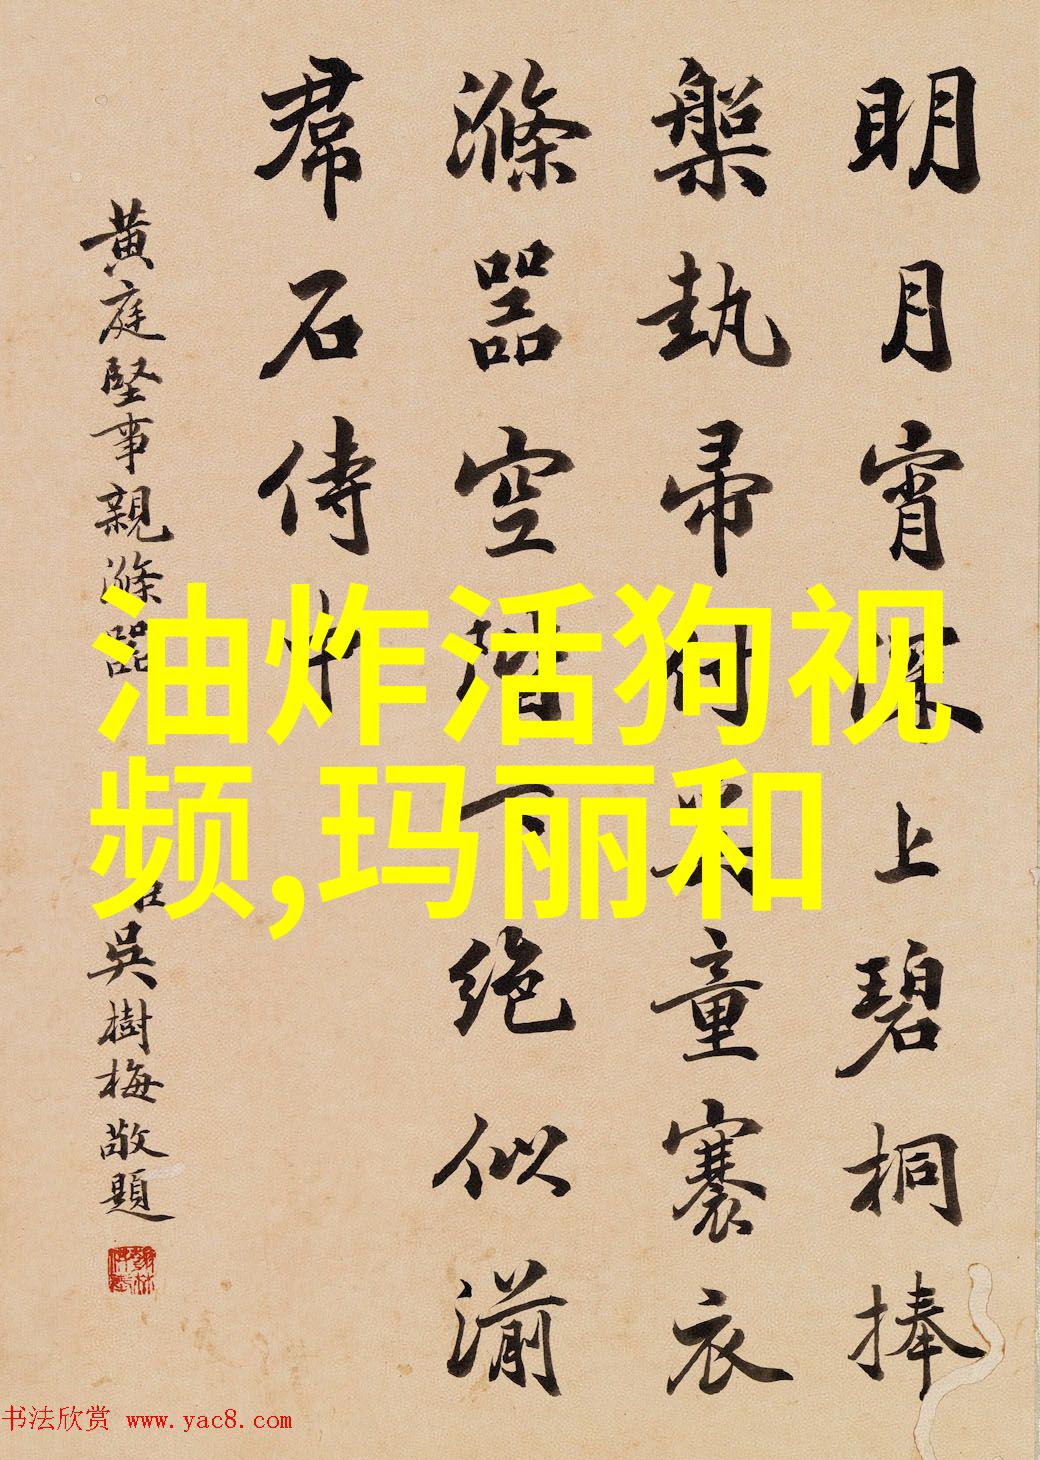 明月宵深上碧桐捧
槃執帚付奚童褰衣
滌器空階下絶似湔
帬石侍中
黃庭堅事親滌器
吳樹梅敬題
油炸活狗视
频,玛丽和
书法欣赏 www.yac8.com